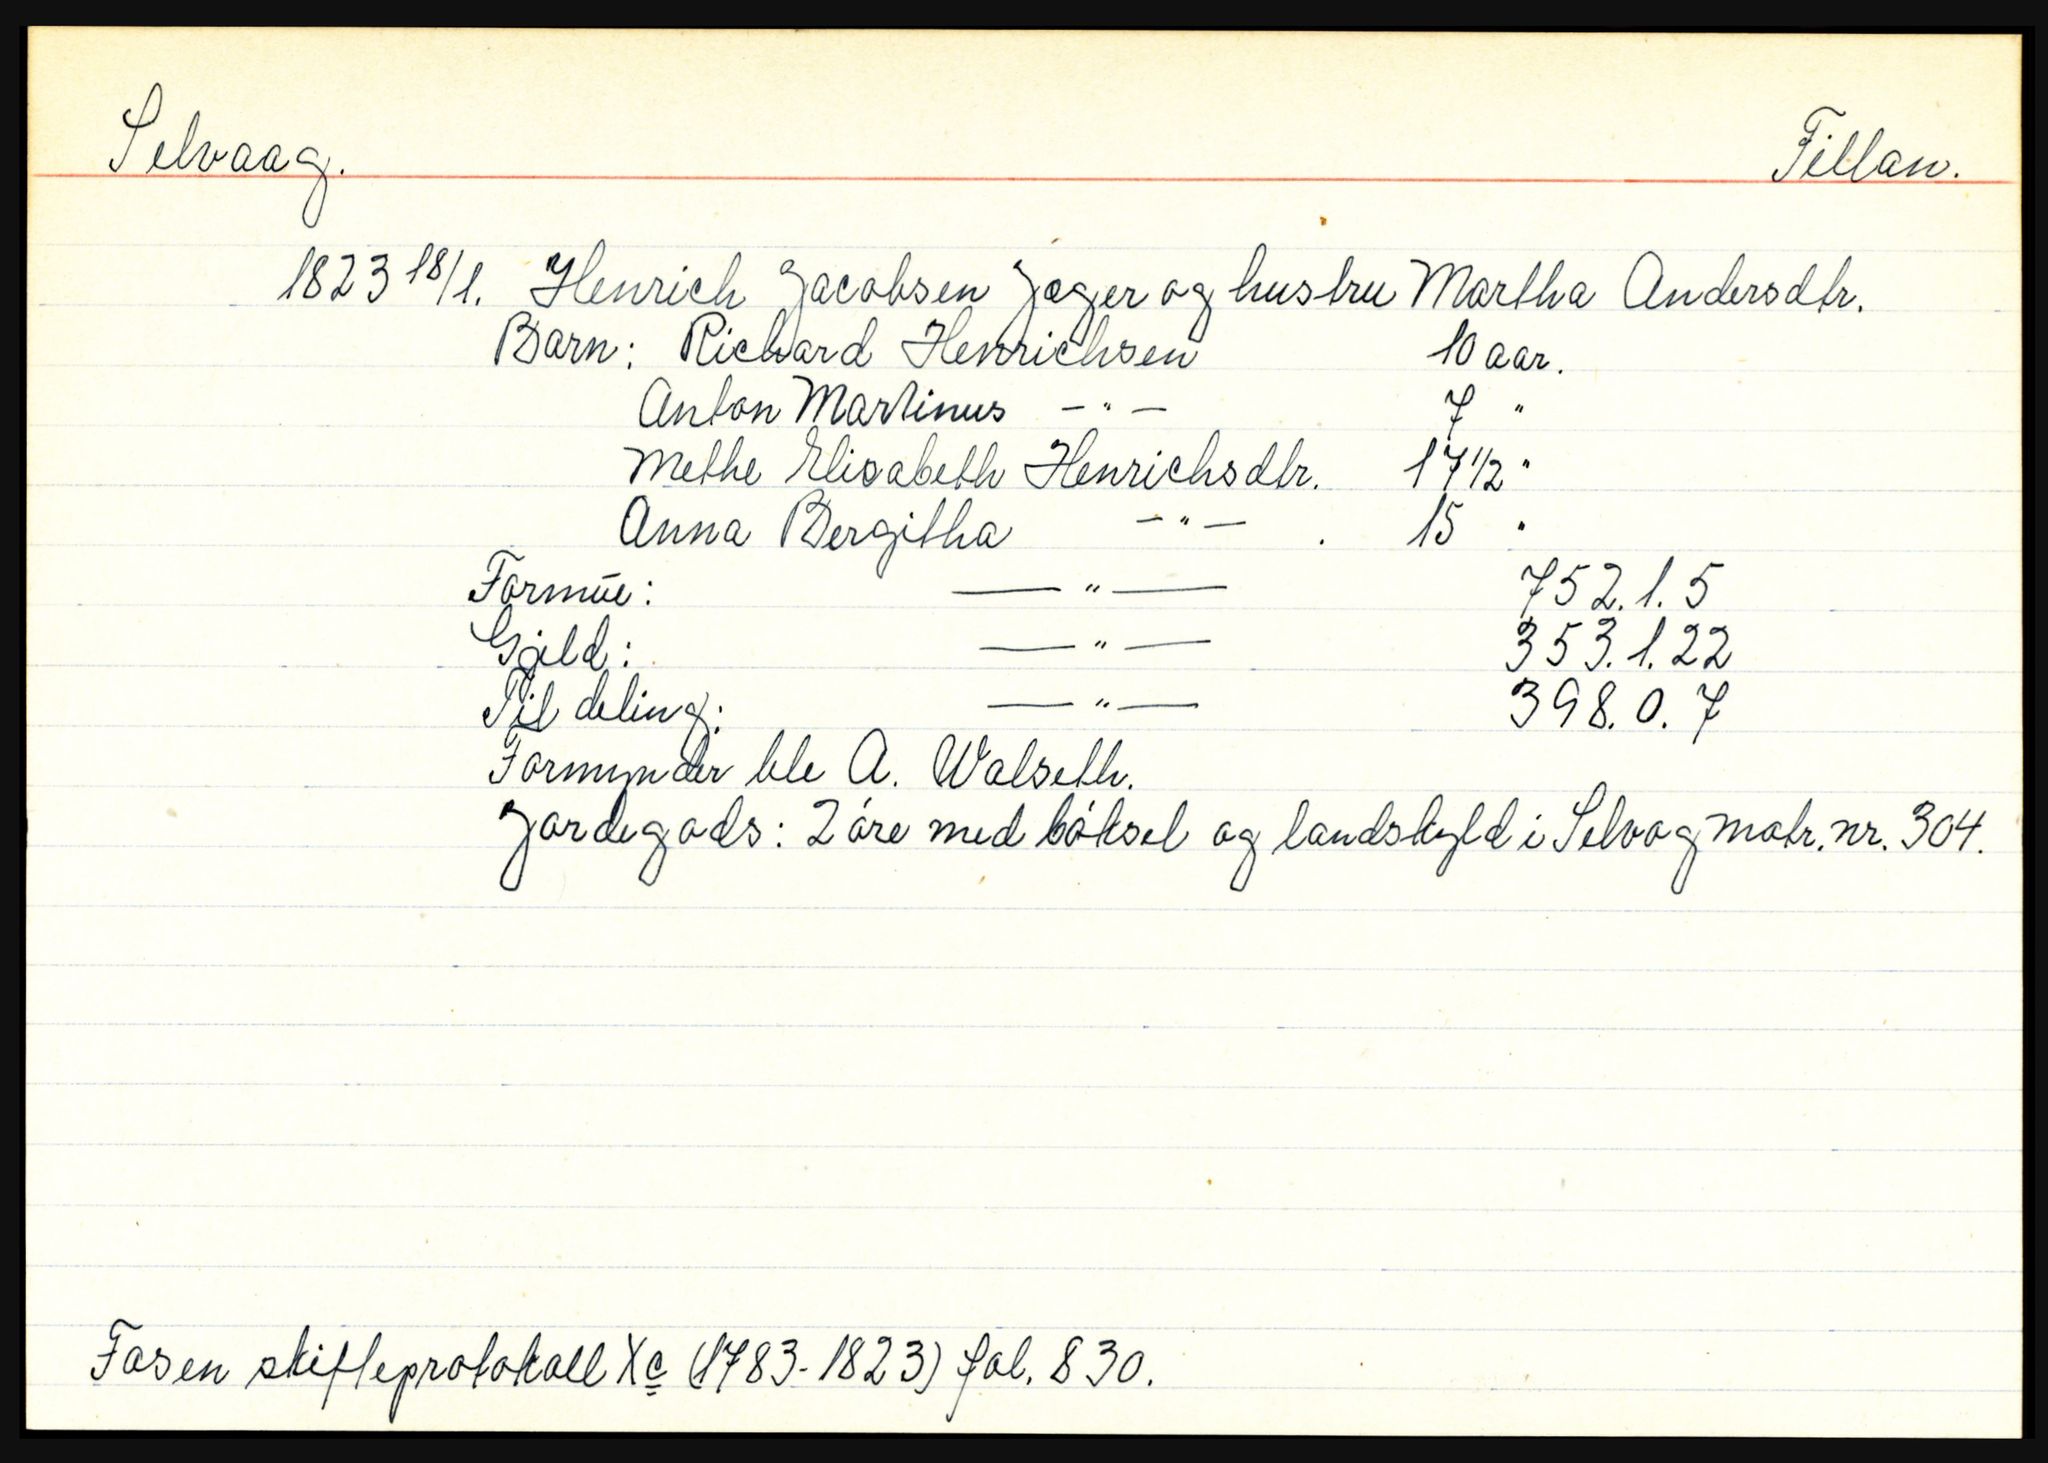 Selvaag. Fillan.
1823 18/1. Henrich Jacobsen Jæger og hustru Martha Andersdtr.
Barn: Richard Henrichsen 10 aar.
Anton Martinus — " — 7 "
Methe Elisabeth Henrichsdtr. 17 1/2 "
Anna Bergitha — " — . 15 "
Formüe: — " — 752.1.5
Gjeld: — " — 353.1.22
Til deling: — " — 398.0.7
Formynder ble A. Walseth.
Jordegods: 2 öre med böksel og landskyld i Selvog matr. nr. 304.
Fosen skifteprotokoll Xc (1783-1823) fol. 830.